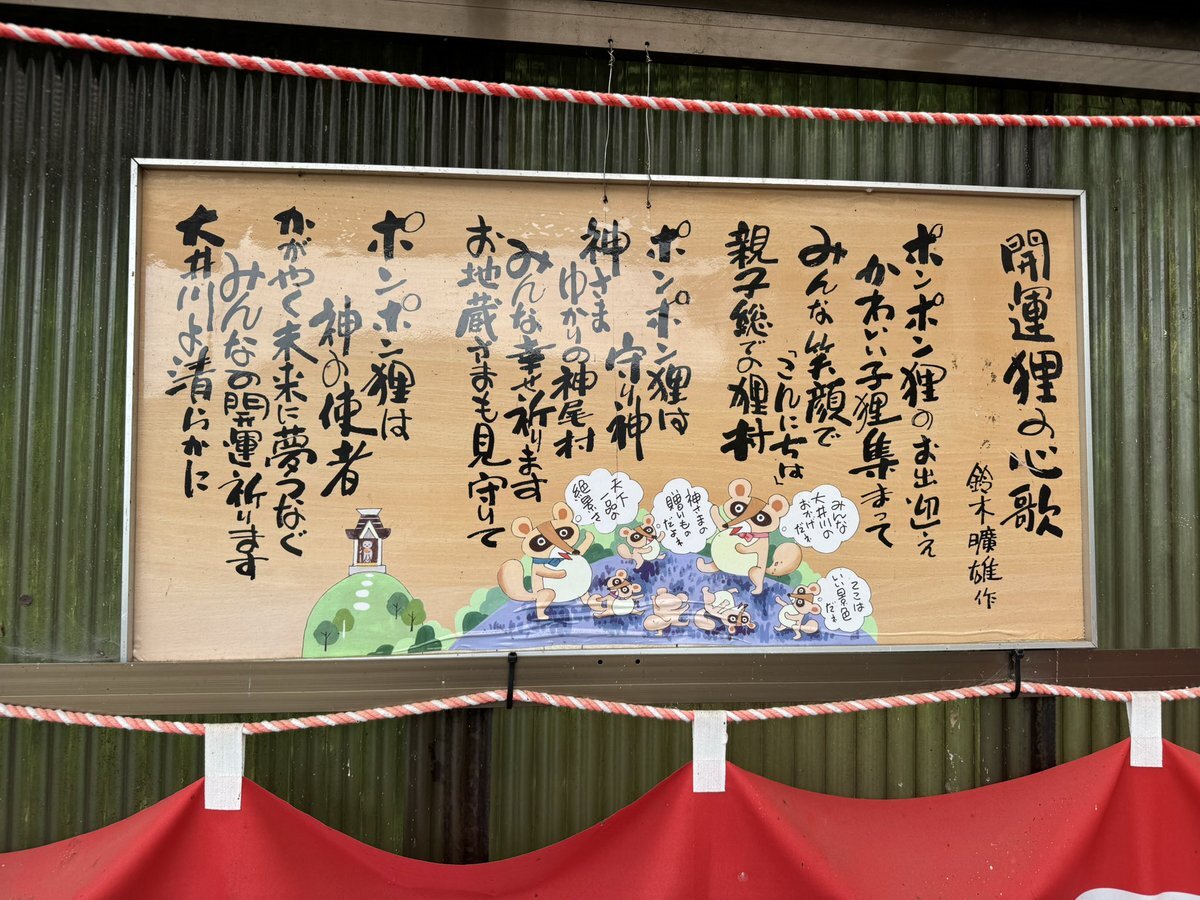 開運狸の心歌
鈴木曠雄作
ポンポン狸のお出迎え
かわいい子狸集まって
みんな笑顔で
「こんにちは」
親子総での狸村
ポンポン狸は
守り神
神さま
ゆかりの神尾村
みんな幸せ祈ります
お地蔵さまも見守りて
ポンポン狸は
神の使者
かがやく未来に夢つなぐ
みんなの開運祈ります
大井川よ清らかに
みんな
大井川の
おかげだね
神さまの
贈りもの
だよね
天下
一品の
絶景さ
ここは
いい景色
だね